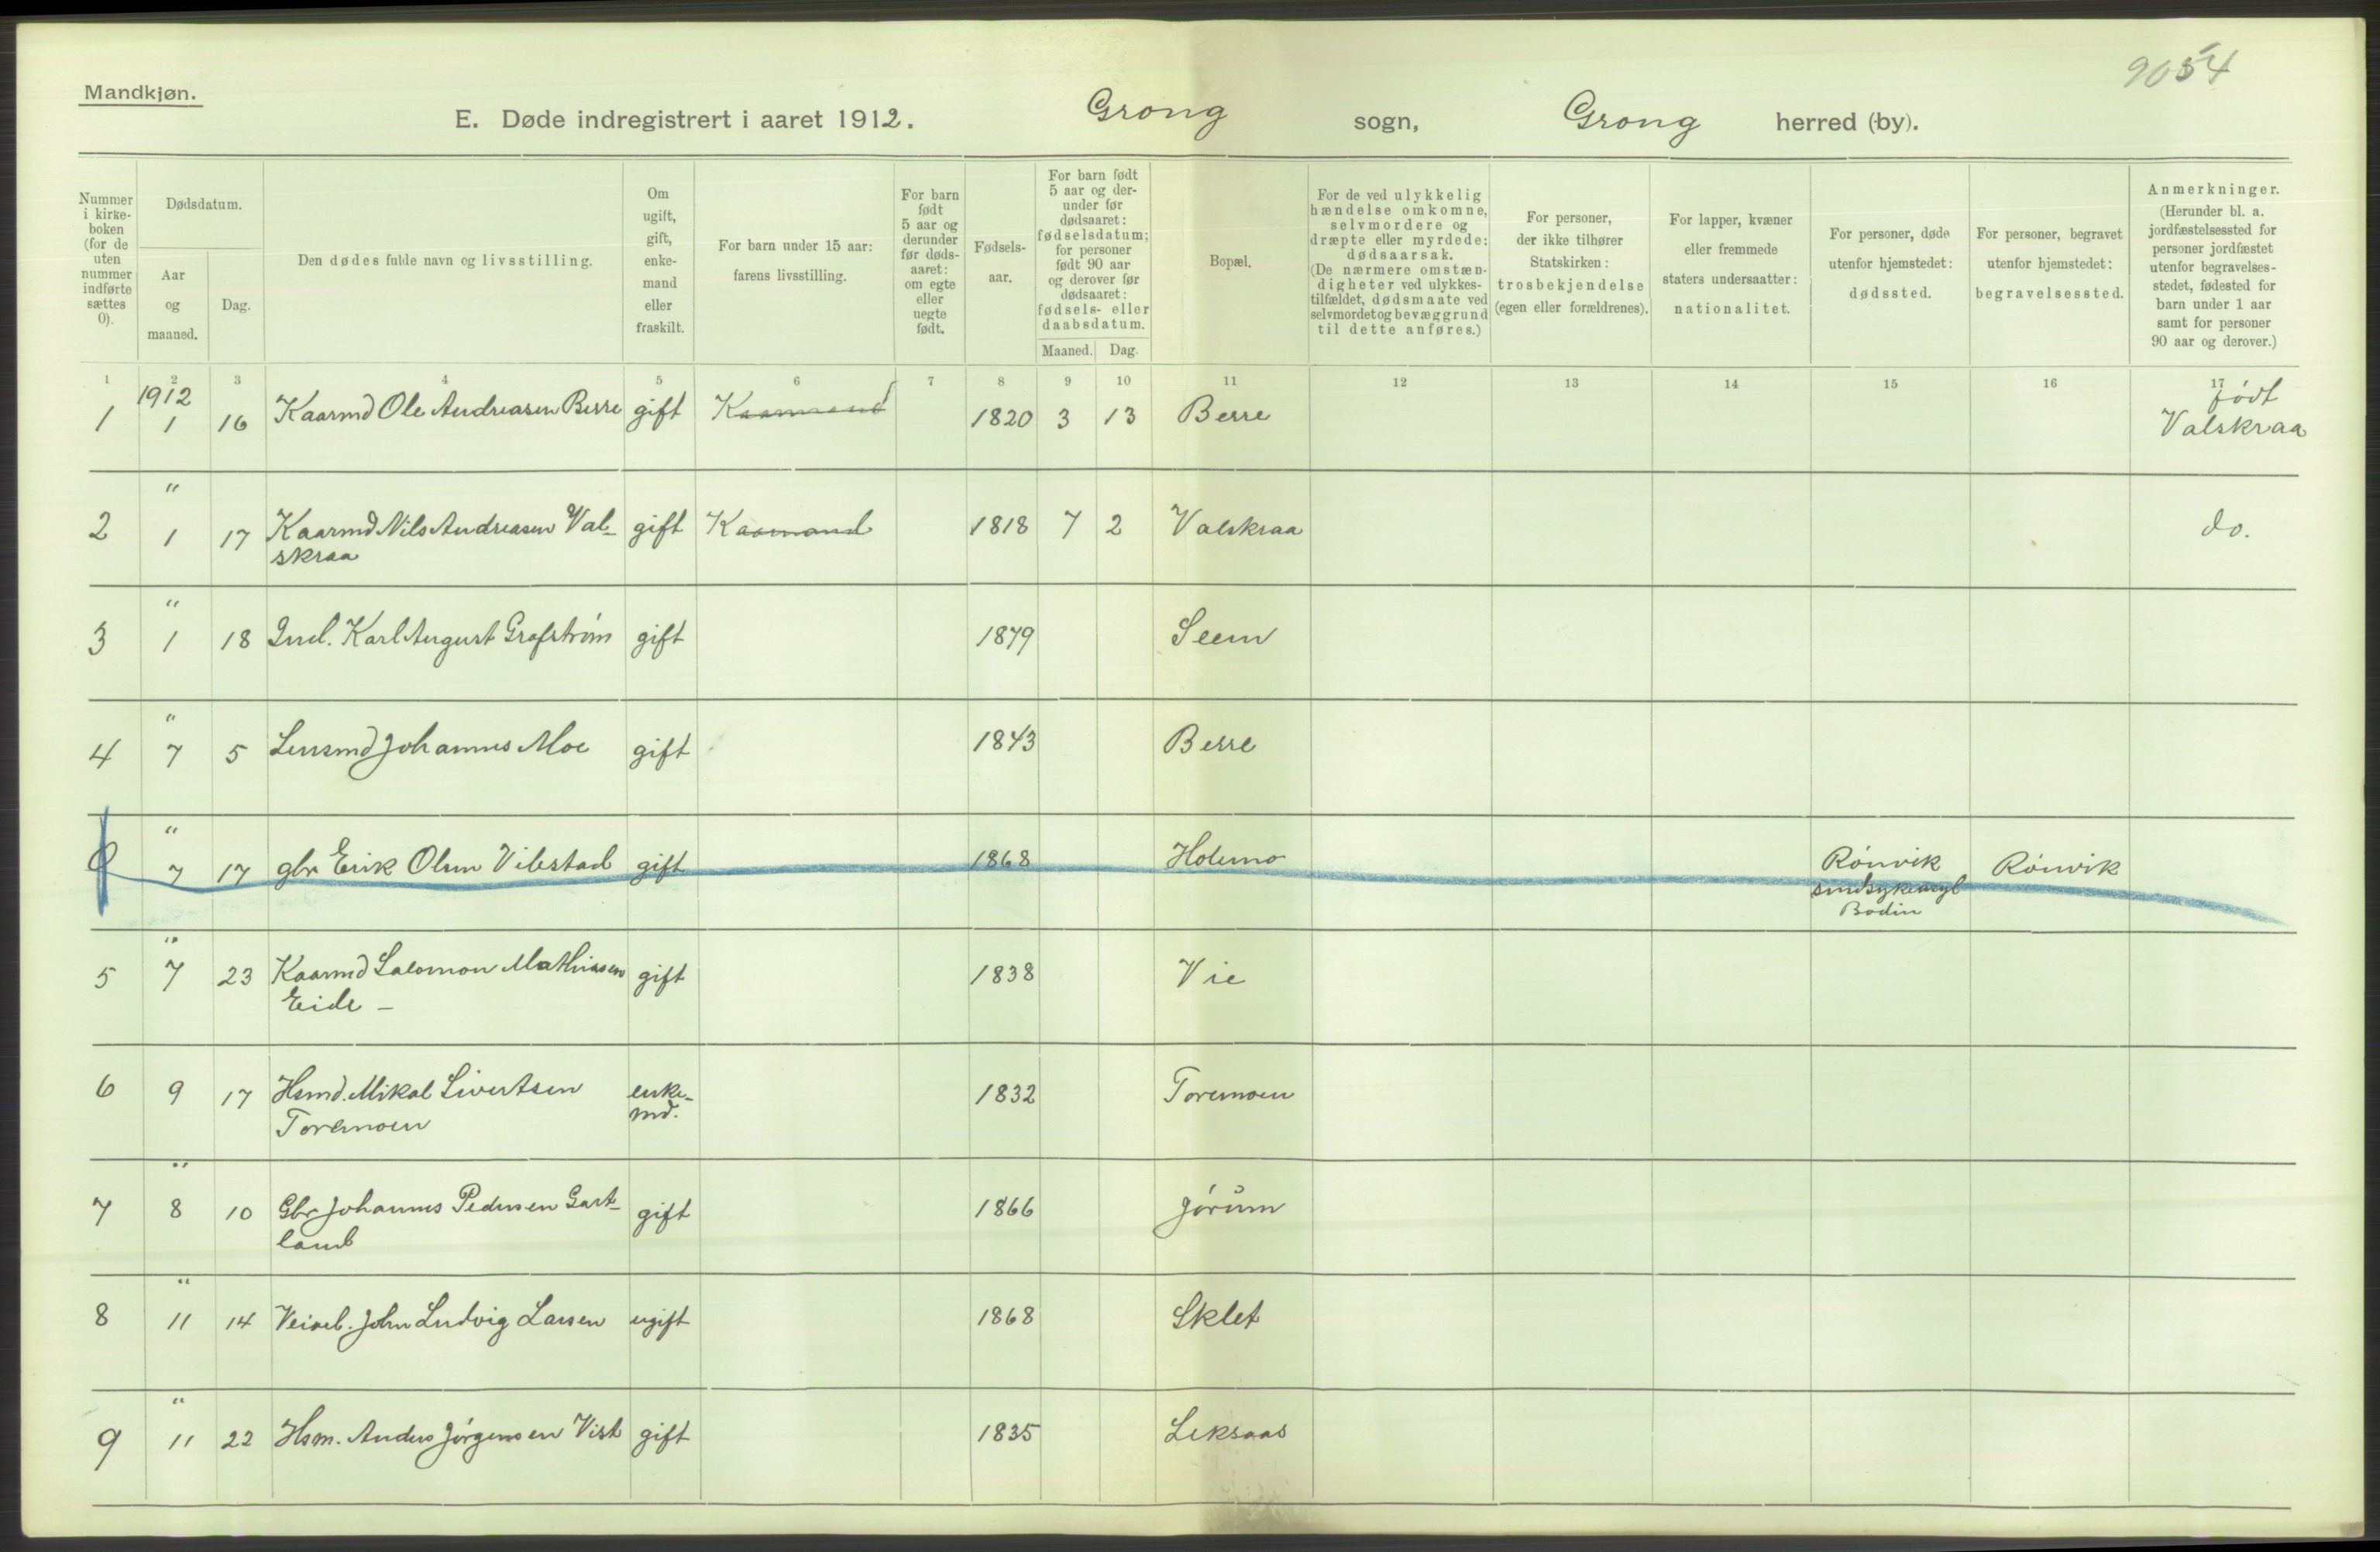 9054
Mandkjøn.
E. Døde indregistrert i aaret 1912. Grong sogn, Grong herred (by).
Nummer i kirke-boken (for de uten nummer indførte sættes 0).
Dødsdatum.
Aar og maaned.
Dag.
Den dødes fulde navn og livsstilling.
Om ugift, gift, enke-mand eller fraskilt.
For barn under 15 aar: farens livsstilling.
For barn født 5 aar og derunder før døds-aaret: om egte eller uegte født.
Fødsels-aar.
For barn født 5 aar og der-under før dødsaaret: fødselsdatum; for personer født 90 aar og derover før dødsaaret: fødsels- eller daabsdatum.
Maaned. Dag.
Bopæl.
For de ved ulykkelig hændelse omkomne, selvmordere og dræpte eller myrdede: dødsaarsak. (De nærmere omstæn-digheter ved ulykkes-tilfældet, dødsmaate ved selvmordet og bevæggrund til dette anføres.)
For personer, der ikke tilhører Statskirken: trosbekjendelse (egen eller forældrenes).
For lapper, kvæner eller fremmede staters undersaatter: nationalitet.
For personer, døde utenfor hjemstedet: dødssted.
For personer, begravet utenfor hjemstedet: begravelsessted.
Anmerkninger. (Herunder bl. a. jordfæstelsessted for personer jordfæstet utenfor begravelses-stedet, fødested for barn under 1 aar samt for personer 90 aar og derover.)
1 2 3 4 5 6 7 8 9 10 11 12 13 14 15 16 17
1912
1 1 16 Kaarmd Ole Andreasen Berre gift Kaarmand 1820 3 13 Berre født
Valskraa
"
2 1 17 Kaarmd Nils Andreasen Val- gift Kaarmand 1818 7 2 Valskraa do.
skraa
"
3 1 18 Ind. Karl August Grafstrøm gift 1879 Seem
"
4 7 5 Lensmd Johannes Moe gift 1843 Berre
"
0 7 17 gbr Erik Olsen Vibstad gift 1868 Holemo Rønvik Rønvik
sindsykeasyl
Bodin
"
5 7 23 Kaarmd Salomon Mathiassen gift 1838 Vie
Eide -
6 9 17 Hsmd. Mikal Sivertsen enke- 1832 Toremoen
Toremoen md.
"
7 8 10 Gbr Johannes Pedersen Gart- gift 1866 Jørum
land
"
8 11 14 Veiarb. John Ludvig Larsen ugift 1868 Sklet
"
9 11 22 Hsm. Anders Jørgensen Vist gift 1835 Leksaas